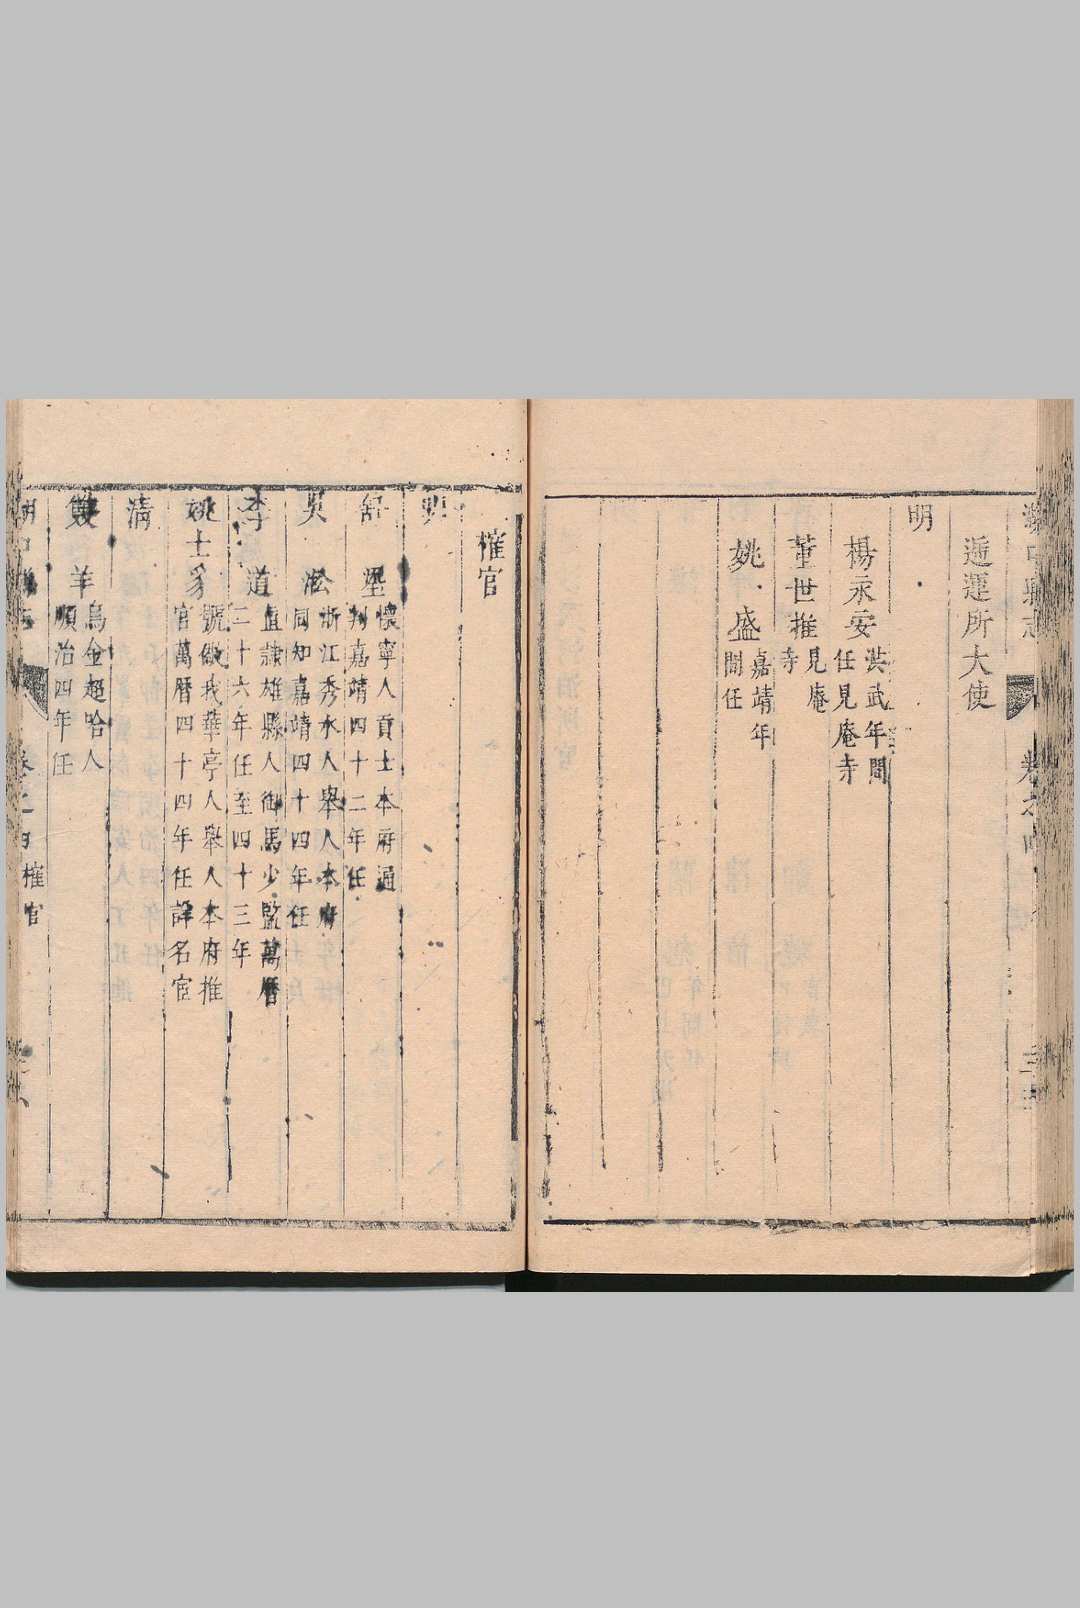 湖口縣志
卷之四
遞運所大使
明
楊永安 洪武年間
任見庵寺
董世推 見庵
寺
姚盛 嘉靖年
間任
榷官
明
舒堊 懷寧人貢士本府通
判嘉靖四十二年任
吳淞 浙江秀水人舉人本府
同知嘉靖四十四年任
李道 直隷雄縣人御馬少監萬曆
二十六年任至四十三年
姚士豸 號儆我華亭人舉人本府推
官萬曆四十四年任詳名宦
清
雙羊 烏金超哈人
順治四年任
湖口縣志
卷之四
榷官